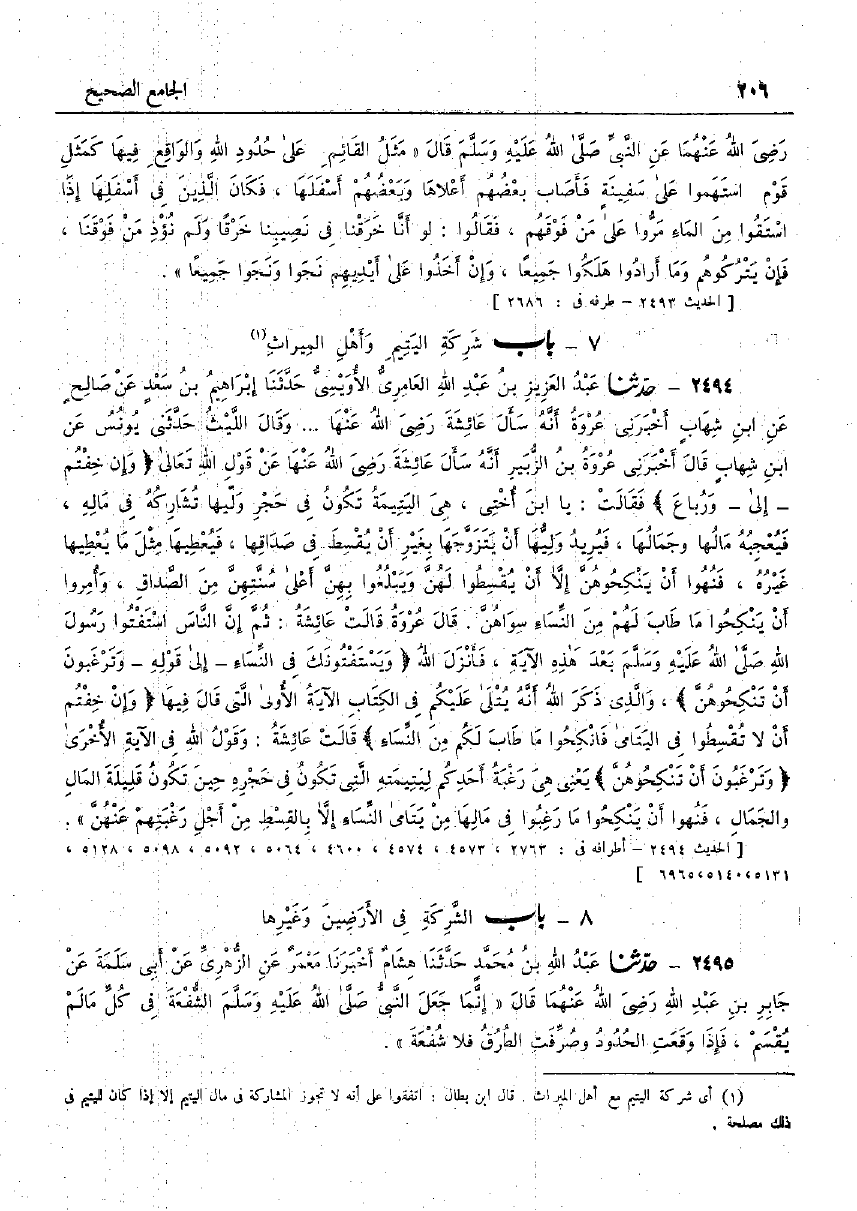 ٢٠٦ الجامع الصحيح
رَضِىَ اللهُ عَنْهُمَا عَنِ النَّبِىِّ صَلَّىٰ اللهُ عَلَيْهِ وَسَلَّمَ قَالَ « مَثَلُ القَائِمِ عَلىٰ حُدُودِ اللهِ وَالوَاقِعِ فِيهَا كَمَثَلِ
قَوْمٍ اسْتَهَموا عَلىٰ سَفِينَةٍ فَأَصَابَ بَعْضُهُم أَعْلاهَا وَبَعْضُهُمْ أَسْفَلَهَا ، فَكَانَ الَّذِينَ فِى أَسْفَلِهَا إِذَا
اسْتَقُوا مِنَ المَاءِ مَرُّوا عَلىٰ مَنْ فَوْقَهُم ، فَقَالُوا : لو أَنَّا خَرَقْنا فِى نَصِيبِنا خَرْقًا وَلَم نُؤْذِ مَنْ فَوْقَنَا ،
فَإِنْ يَتْرُكُوهُم وَمَا أَرادُوا هَلَكُوا جَمِيعًا ، وَإِنْ أَخَذُوا عَلىٰ أَيْدِيهِم نَجَوا وَنَجَوا جَمِيعًا » .
[ الحديث ٢٤٩٣ - طرفه فى : ٢٦٨٦ ]
٧ - باب شَرِكَةِ اليَتِيمِ وَأَهْلِ المِيراثِ(١)
٢٤٩٤ - حَدَّثنا عَبْدُ العَزِيزِ بنُ عَبْدِ اللهِ العَامِرِىُّ الأُوَيْسِىُّ حَدَّثَنَا إِبْرَاهِيمُ بنُ سَعْدٍ عَنْ صَالِحٍ
عَنِ ابنِ شِهَابٍ أَخْبَرَنِى عُرْوَةُ أَنَّهُ سَأَلَ عَائِشَةَ رَضِىَ اللهُ عَنْهَا ... وَقَالَ اللَّيْثُ حَدَّثَنِى يُونُسُ عَنِ
ابنِ شِهابٍ قَالَ أَخْبَرَنِى عُرْوَةُ بنُ الزُّبَيرِ أَنَّهُ سَأَلَ عَائِشَةَ رَضِىَ اللهُ عَنْهَا عَنْ قَوْلِ اللهِ تَعَالىٰ ﴿ وَإِن خِفْتُم
- إِلىٰ - وَرُباعَ ﴾ فَقَالَتْ : يا ابنَ أُخْتِى ، هِىَ اليَتِيمَةُ تَكُونُ فِى حَجْرِ وَلِيِّها تُشَارِكُهُ فِى مَالِهِ ،
فَيُعْجِبُهُ مَالُها وجَمَالُهَا ، فَيُرِيدُ وَلِيُّها أَنْ يَتَزَوَّجَهَا بِغَيْرِ أَنْ يُقْسِطَ فِى صَدَاقِها ، فَيُعْطِيهَا مِثْلَ مَا يُعْطِيها
غَيْرُهُ ، فَنُهُوا أَنْ يَنْكِحُوهُنَّ إِلَّا أَنْ يُقْسِطُوا لَهُنَّ وَيَبْلُغُوا بِهِنَّ أَعْلىٰ سُنَّتِهِنَّ مِنَ الصَّدَاقِ ، وَأُمِروا
أَنْ يَنْكِحُوا مَا طَابَ لَهُمْ مِنَ النِّسَاءِ سِوَاهُنَّ . قَالَ عُرْوَةُ قَالَتْ عَائِشَةُ : ثُمَّ إِنَّ النَّاسَ اسْتَفْتَوْا رَسُولَ
اللهِ صَلَّىٰ اللهُ عَلَيْهِ وَسَلَّمَ بَعْدَ هَٰذِهِ الآيَةِ ، فَأَنْزَلَ اللهُ ﴿ وَيَسْتَفْتُونَكَ فِى النِّسَاءِ - إِلىٰ قَوْلِهِ - وَتَرْغَبُونَ
أَنْ تَنْكِحُوهُنَّ ﴾ ، وَالَّذِى ذَكَرَ اللهُ أَنَّهُ يُتْلىٰ عَلَيْكُم فِى الكِتَابِ الآيَةُ الأُولىٰ الَّتِى قَالَ فِيهَا ﴿ وَإِنْ خِفْتُم
أَنْ لا تُقْسِطُوا فِى اليَتَامىٰ فَانْكِحُوا مَا طَابَ لَكُم مِنَ النِّسَاءِ ﴾ قَالَتْ عَائِشَةُ : وَقَوْلُ اللهِ فِى الآيَةِ الأُخْرَىٰ
﴿ وَتَرْغَبُونَ أَنْ تَنْكِحُوهُنَّ ﴾ يَعْنِى هِىَ رَغْبَةُ أَحَدِكُم لِيَتِيمَتِهِ الَّتِى تَكُونُ فِى حَجْرِهِ حِينَ تَكُونُ قَلِيلَةَ المَالِ
والجَمَالِ ، فَنُهوا أَنْ يَنْكِحُوا مَا رَغِبُوا فِى مَالِهَا مِنْ يَتَامَىٰ النِّسَاءِ إِلَّا بِالقِسْطِ مِنْ أَجْلِ رَغْبَتِهِمْ عَنْهُنَّ » .
[ الحديث ٢٤٩٤ - أطرافه فى : ٢٧٦٣ ، ٤٥٧٣ ، ٤٥٧٤ ، ٤٦٠٠ ، ٥٠٦٤ ، ٥٠٩٢ ، ٥٠٩٨ ، ٥١٢٨ ،
٥١٣١، ٥١٤٠، ٦٩٦٥ ]
٨ - باب الشَّرِكَةِ فِى الأَرَضِينَ وَغَيْرِها
٢٤٩٥ - حَدَّثنا عَبْدُ اللهِ بنُ مُحَمَّدٍ حَدَّثَنَا هِشَامٌ أَخْبَرَنَا مَعْمَرٌ عَنِ الزُّهْرِىِّ عَنْ أَبِى سَلَمَةَ عَنْ
جَابِرِ بنِ عَبْدِ اللهِ رَضِىَ اللهُ عَنْهُمَا قَالَ « إِنَّمَا جَعَلَ النَّبِىُّ صَلَّىٰ اللهُ عَلَيْهِ وَسَلَّمَ الشُّفْعَةَ فِى كُلِّ مَالَمْ
يُقْسَمْ ، فَإِذَا وَقَعَتِ الحُدُودُ وَصُرِّفَتِ الطُّرُقُ فَلا شُفْعَةَ » .
(١) أى شركة اليتيم مع أهل الميراث . قال ابن بطال : اتفقوا على أنه لا تجوز المشاركة فى مال اليتيم إلا إذا كان لليتيم فى
ذلك مصلحة .